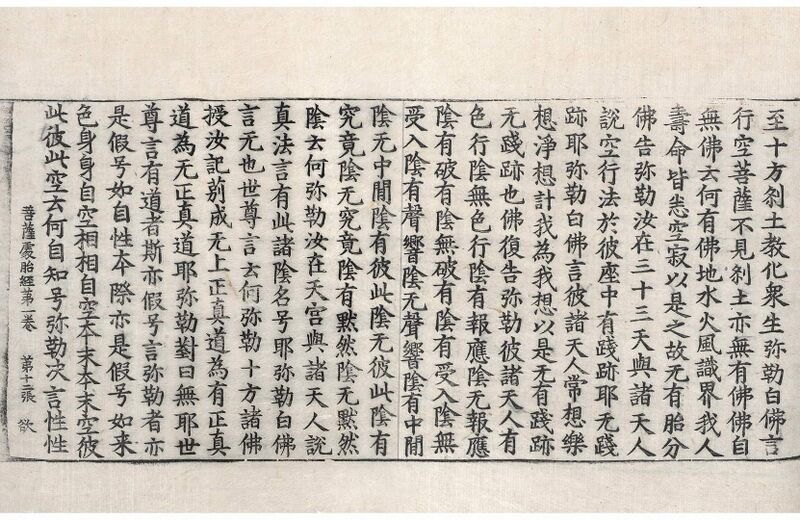 至十方刹土教化衆生弥勒白佛言
行空菩薩不見刹土亦無有佛佛自
無佛云何有佛地水火風識界我人
壽命皆悉空寂以是之故无有胎分
佛告弥勒汝在三十三天與諸天人
說空行法於彼座中有踐跡耶无踐
跡耶弥勒白佛言彼諸天人常想樂
想淨想計我為我想以是无有踐跡
无踐跡也佛復告弥勒彼諸天人有
色行陰無色行陰有報應陰无報應
陰有破有陰無破有陰有受入陰無
受入陰有聲響陰无聲響陰有中間
陰无中間陰有彼此陰无彼此陰有
究竟陰无究竟陰有默然陰无默然
陰云何弥勒汝在天宮與諸天人說
真法言有此諸陰名号耶弥勒白佛
言无也世尊言云何弥勒十方諸佛
授汝記莂成无上正真道為有正真
道為无正真道耶弥勒對曰無耶世
尊言有道者斯亦假号言弥勒者亦
是假号如自性本際亦是假号如来
色身身自空相相自空本末本末空彼
此彼此空云何自知号弥勒次言性性
菩薩處胎經第二卷 第十二張 欲